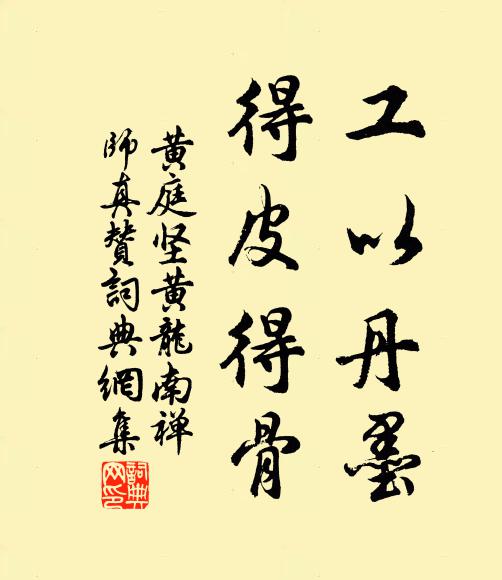 工以丹墨
得皮得骨
黄庭坚黄龍南禅
師真赞詞典網集
詞典网印